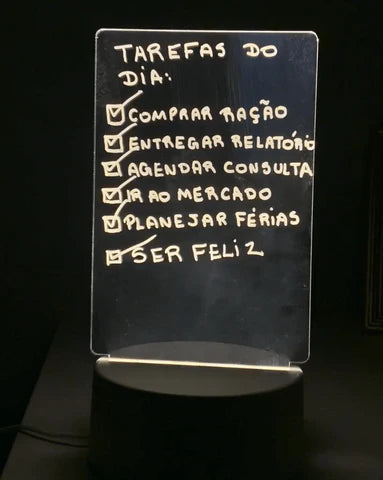 TAREFAS DO
DIA:
COMPRAR RAÇÃO
ENTREGAR RELATÓRIO
AGENDAR CONSULTA
IR AO MERCADO
PLANEJAR FÉRIAS
SER FELIZ